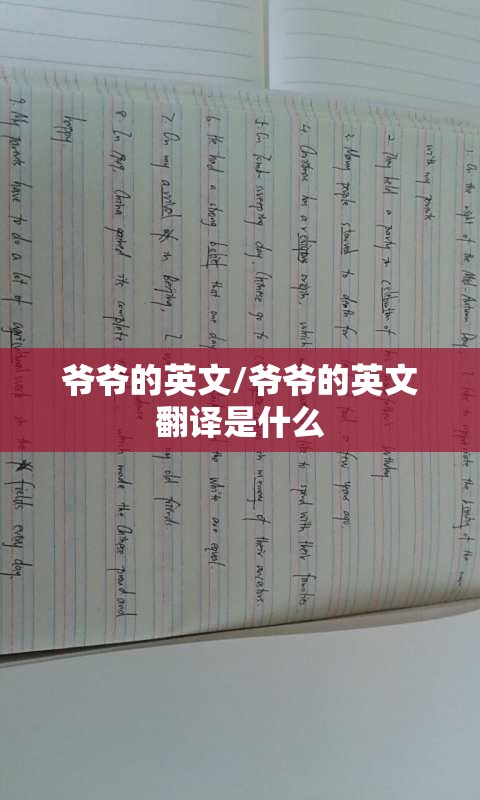 1. On the night of the Mid-Autumn Day, I like to appreciate the beauty of the
with my parents
2. They held a party in celebration of birthday
3. Many people starved to death for food a few years ago.
4. Christmas has a religious origin, which like to spend with their families
5. On Tomb-sweeping day, Chinese go to in memory of their ancestors.
6. He had a strong belief that one day the white are equal.
7. On my arrival in Beijing, I old friends.
8. In 1949, China gained its complete which made the Chinese proud and
happy
9. My parents have to do a lot of agricultural work in the fields every day.
爷爷的英文/爷爷的英文
翻译是什么